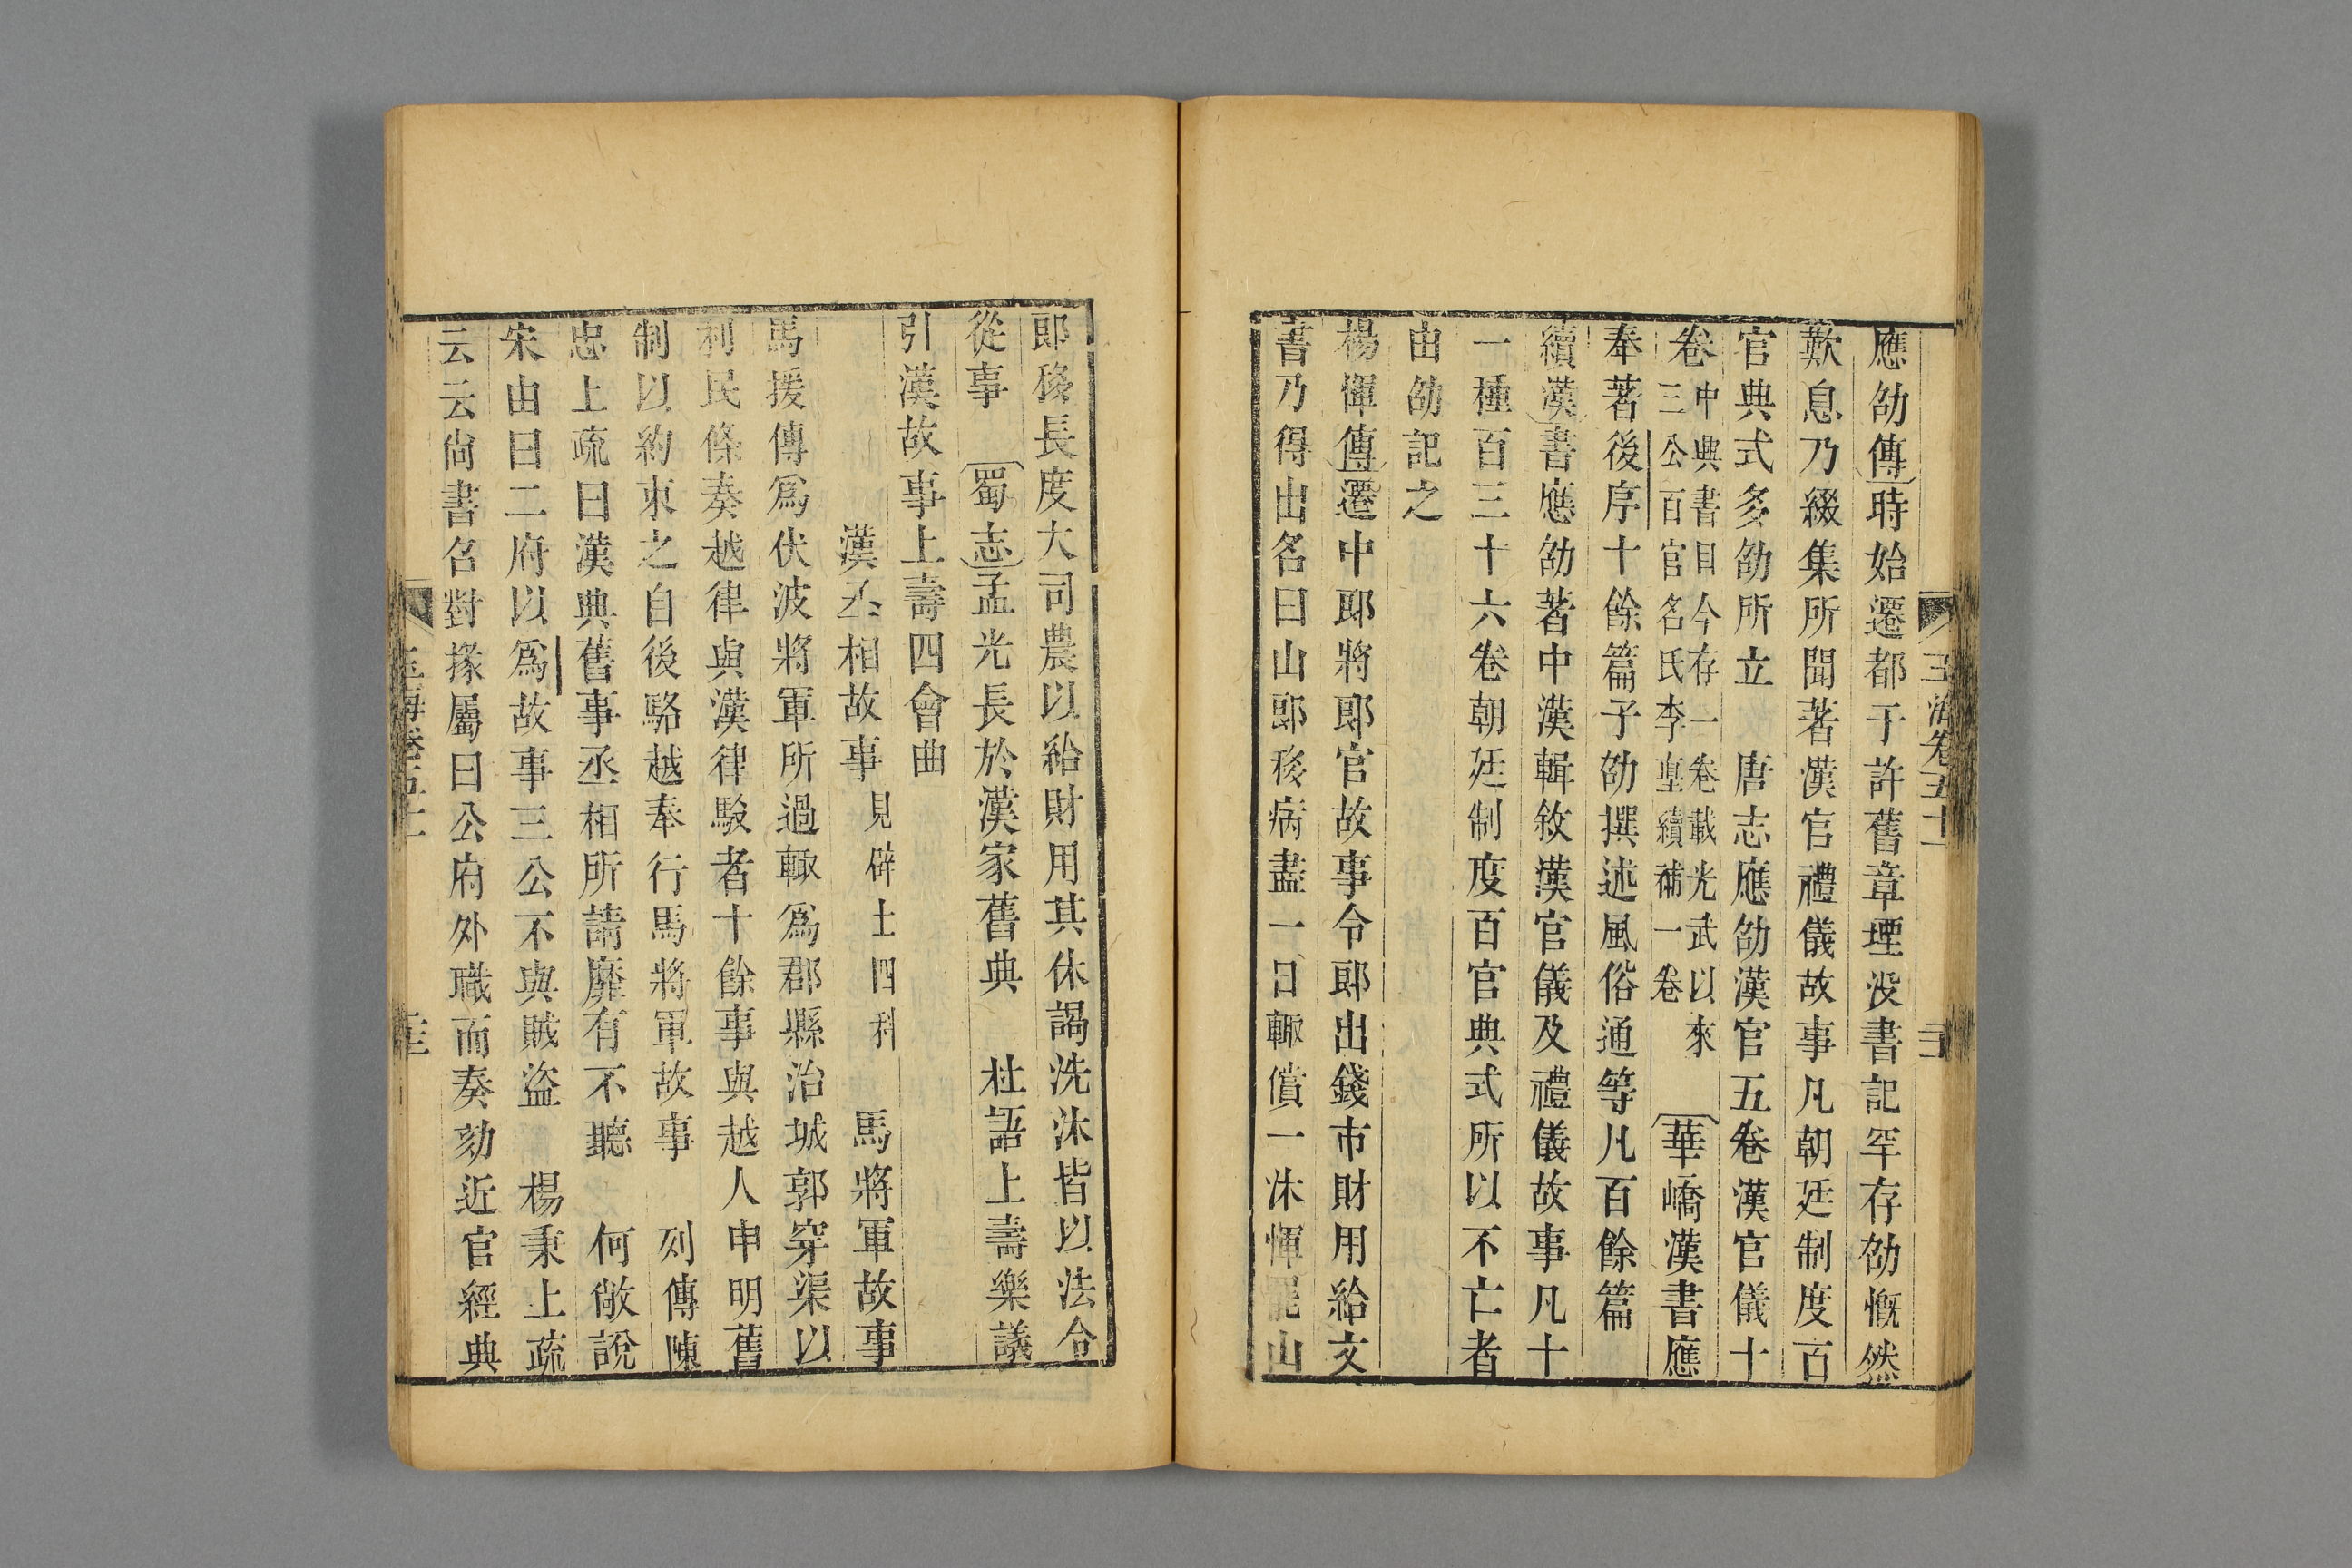 玉海卷五十一
應劭傳時始遷都于許舊章堙没書記罕存劭慨然
歎息乃綴集所聞著漢官禮儀故事凡朝廷制度百
官典式多劭所立 唐志應劭漢官五卷漢官儀十
卷中興書目今存一卷載光武以來三公百官名氏李埴續補一卷 華嶠漢書應
奉著後序十餘篇子劭撰述風俗通等凡百餘篇
續漢書應劭著中漢輯敘漢官儀及禮儀故事凡十
一種百三十六卷朝廷制度百官典式所以不亡者
由劭記之
楊惲傳遷中郎將郎官故事令郎出錢市財用給文
書乃得出名曰山郎移病盡一日輒償一沐惲罷山
郎移長度大司農以給財用其休謁洗沐皆以法令
從事 蜀志孟光長於漢家舊典 杜語上壽樂議
引漢故事上壽四會曲
漢丞相故事見辟士四科 馬將軍故事
馬援傳爲伏波將軍所過輒爲郡縣治城郭穿渠以
利民條奏越律與漢律駮者十餘事與越人申明舊
制以約束之自後駱越奉行馬將軍故事 列傳陳
忠上疏曰漢典舊事丞相所請靡有不聽 何敞說
宋由曰二府以爲故事三公不與賊盜 楊秉上疏
云云尙書召對掾屬曰公府外職而奏劾近官經典